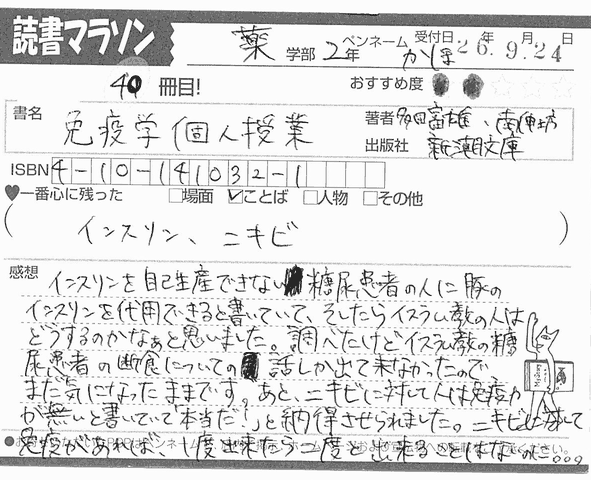 読書マラソン
薬 学部 2年 ペンネーム かしま 受付日 26.年 9.月 24日
40 冊目!
おすすめ度
書名 免疫学個人授業
著者 多田富雄、南伸坊
出版社 新潮文庫
ISBN 4-10-141032-1
♥一番心に残った □場面 ☑ことば □人物 □その他
( インスリン、ニキビ )
感想
インスリンを自己生産できない糖尿患者の人に豚の
インスリンを代用できると書いていて、そしたらイスラム教の人は
どうするのかなぁと思いました。調べたけどイスラム教の糖
尿患者の断食についての話しか出て来なかったので
まだ気になったままです。あと、ニキビに対して人は免疫力
が無いと書いていて「本当だ!」と納得させられました。ニキビに対して
免疫があれば、1度出来たら二度と出来ることはないのに...。